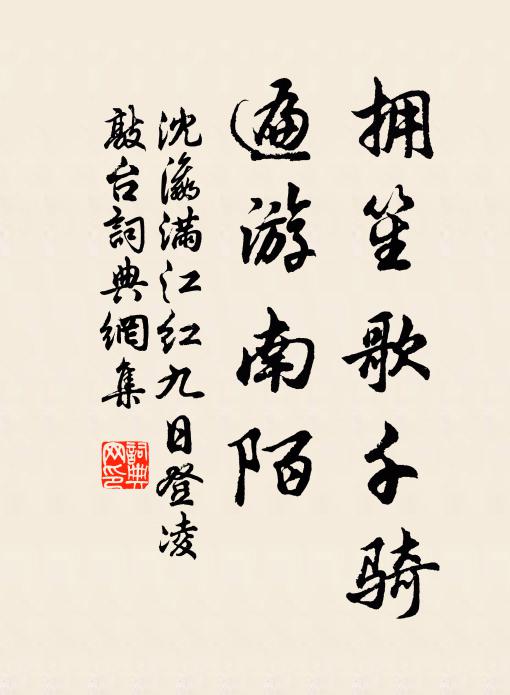 拥笙歌千骑
遍游南陌
沈瀛满江红九日登凌
敲台词典網集
詞典
网印